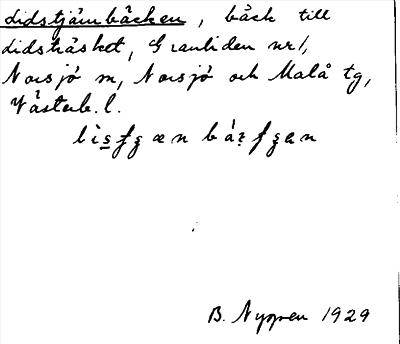 didstjärnbäcken, bäck till
didsträsket, Granliden nr 1,
Norsjö sn, Norsjö och Malå tg,
Västerb. l.
B. Nygren 1929